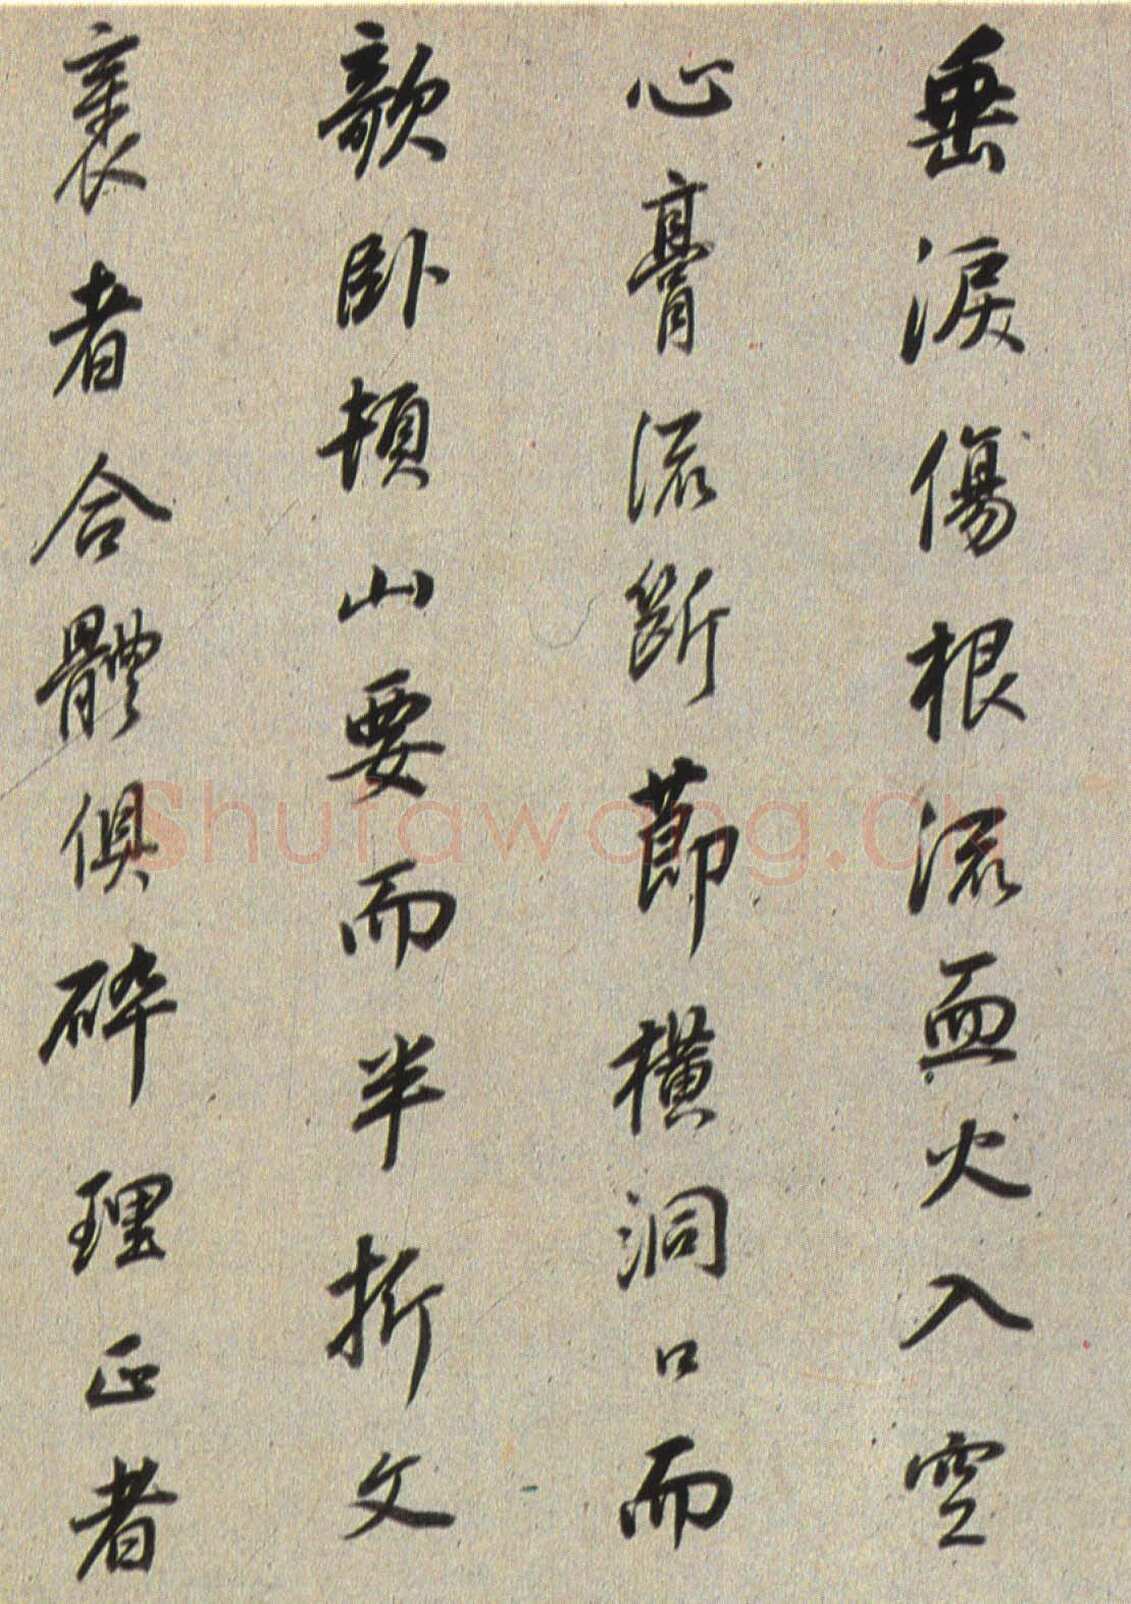 垂淚傷根流血火入空
心膏流斷節橫洞口而
欹卧頓山要而半折文
衺者合體俱碎理正者
Shufawang.cn